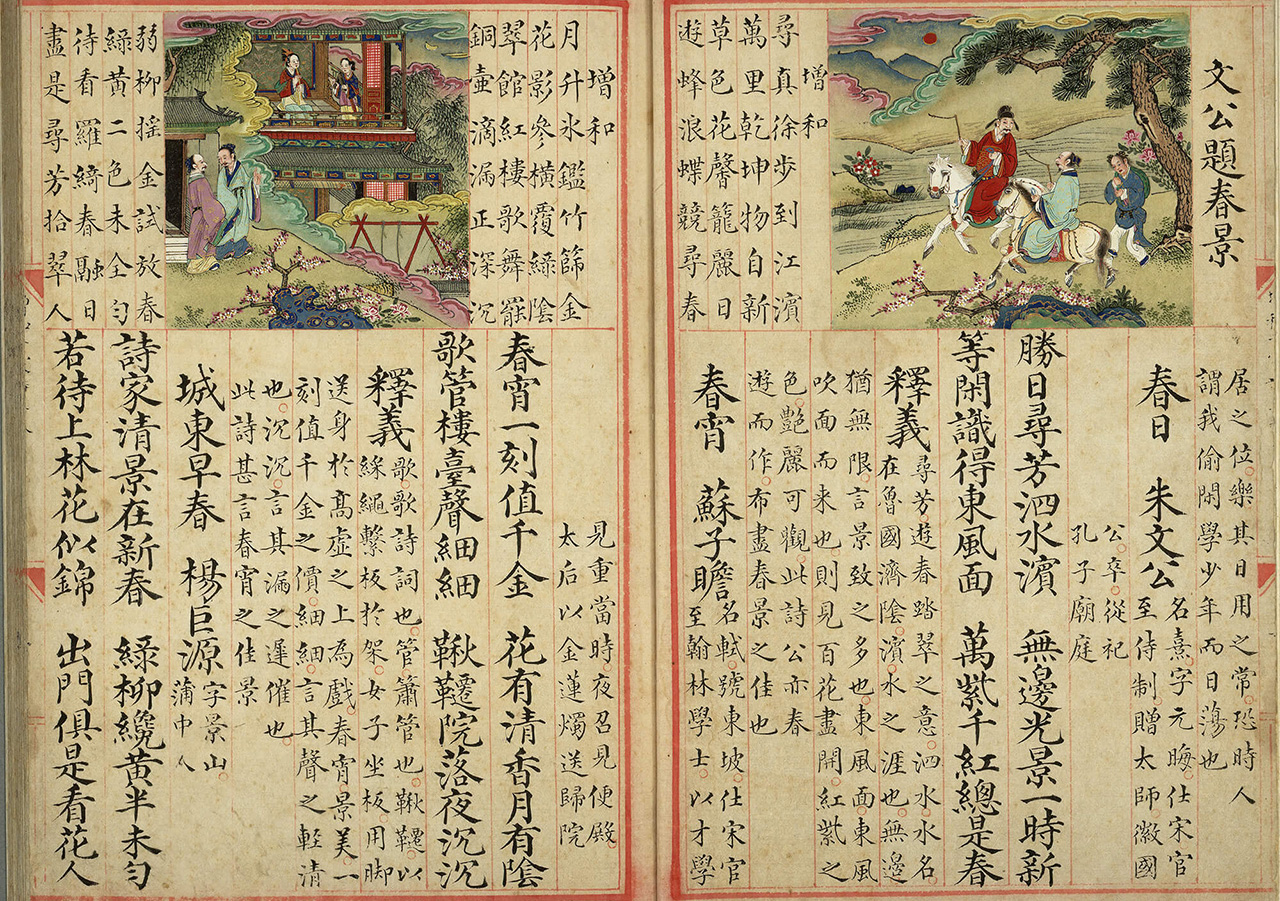 文公題春景
增和
尋真徐步到江濱
萬里乾坤物自新
草色花馨籠麗日
遊蜂浪蝶競尋春
居之位樂其日用之常恐時人
謂我偷閑學少年而日蕩也
春日　朱文公
名熹字元晦仕宋官
至侍制贈太師徽國
公卒從祀
孔子廟庭
勝日尋芳泗水濱　無邊光景一時新
等閑識得東風面　萬紫千紅總是春
釋義
尋芳遊春踏翠之意泗水水名
在魯國濟陰濱水之涯也無邊
猶無限言景致之多也東風面東風
吹面而来也則見百花盡開紅紫之
色艷麗可觀此詩公亦春
遊而作布盡春景之佳也
春宵　蘇子瞻
名軾號東坡仕宋官
至翰林學士以才學
增和
月升氷鑑竹篩金
花影參橫覆綠陰
翠館紅樓歌舞罷
銅壷滴漏正深沉
弱柳搖金試放春
綠黃二色未全勻
待看羅綺春融日
盡是尋芳拾翠人
見重當時夜召見便殿
太后以金蓮燭送歸院
春宵一刻值千金　花有清香月有陰
歌管樓臺聲細細　鞦韆院落夜沉沉
釋義
歌歌詩詞也管簫管也鞦韆以
綵繩繫板於架女子坐板用脚
送身於高虛之上為戲春宵景美一
刻值千金之價細細言其聲之輕清
也沉沉言其漏之遲催也
此詩甚言春宵之佳景
城東早春　楊巨源
字景山
蒲中人
詩家清景在新春　綠柳纔黃半未勻
若待上林花似錦　出門俱是看花人